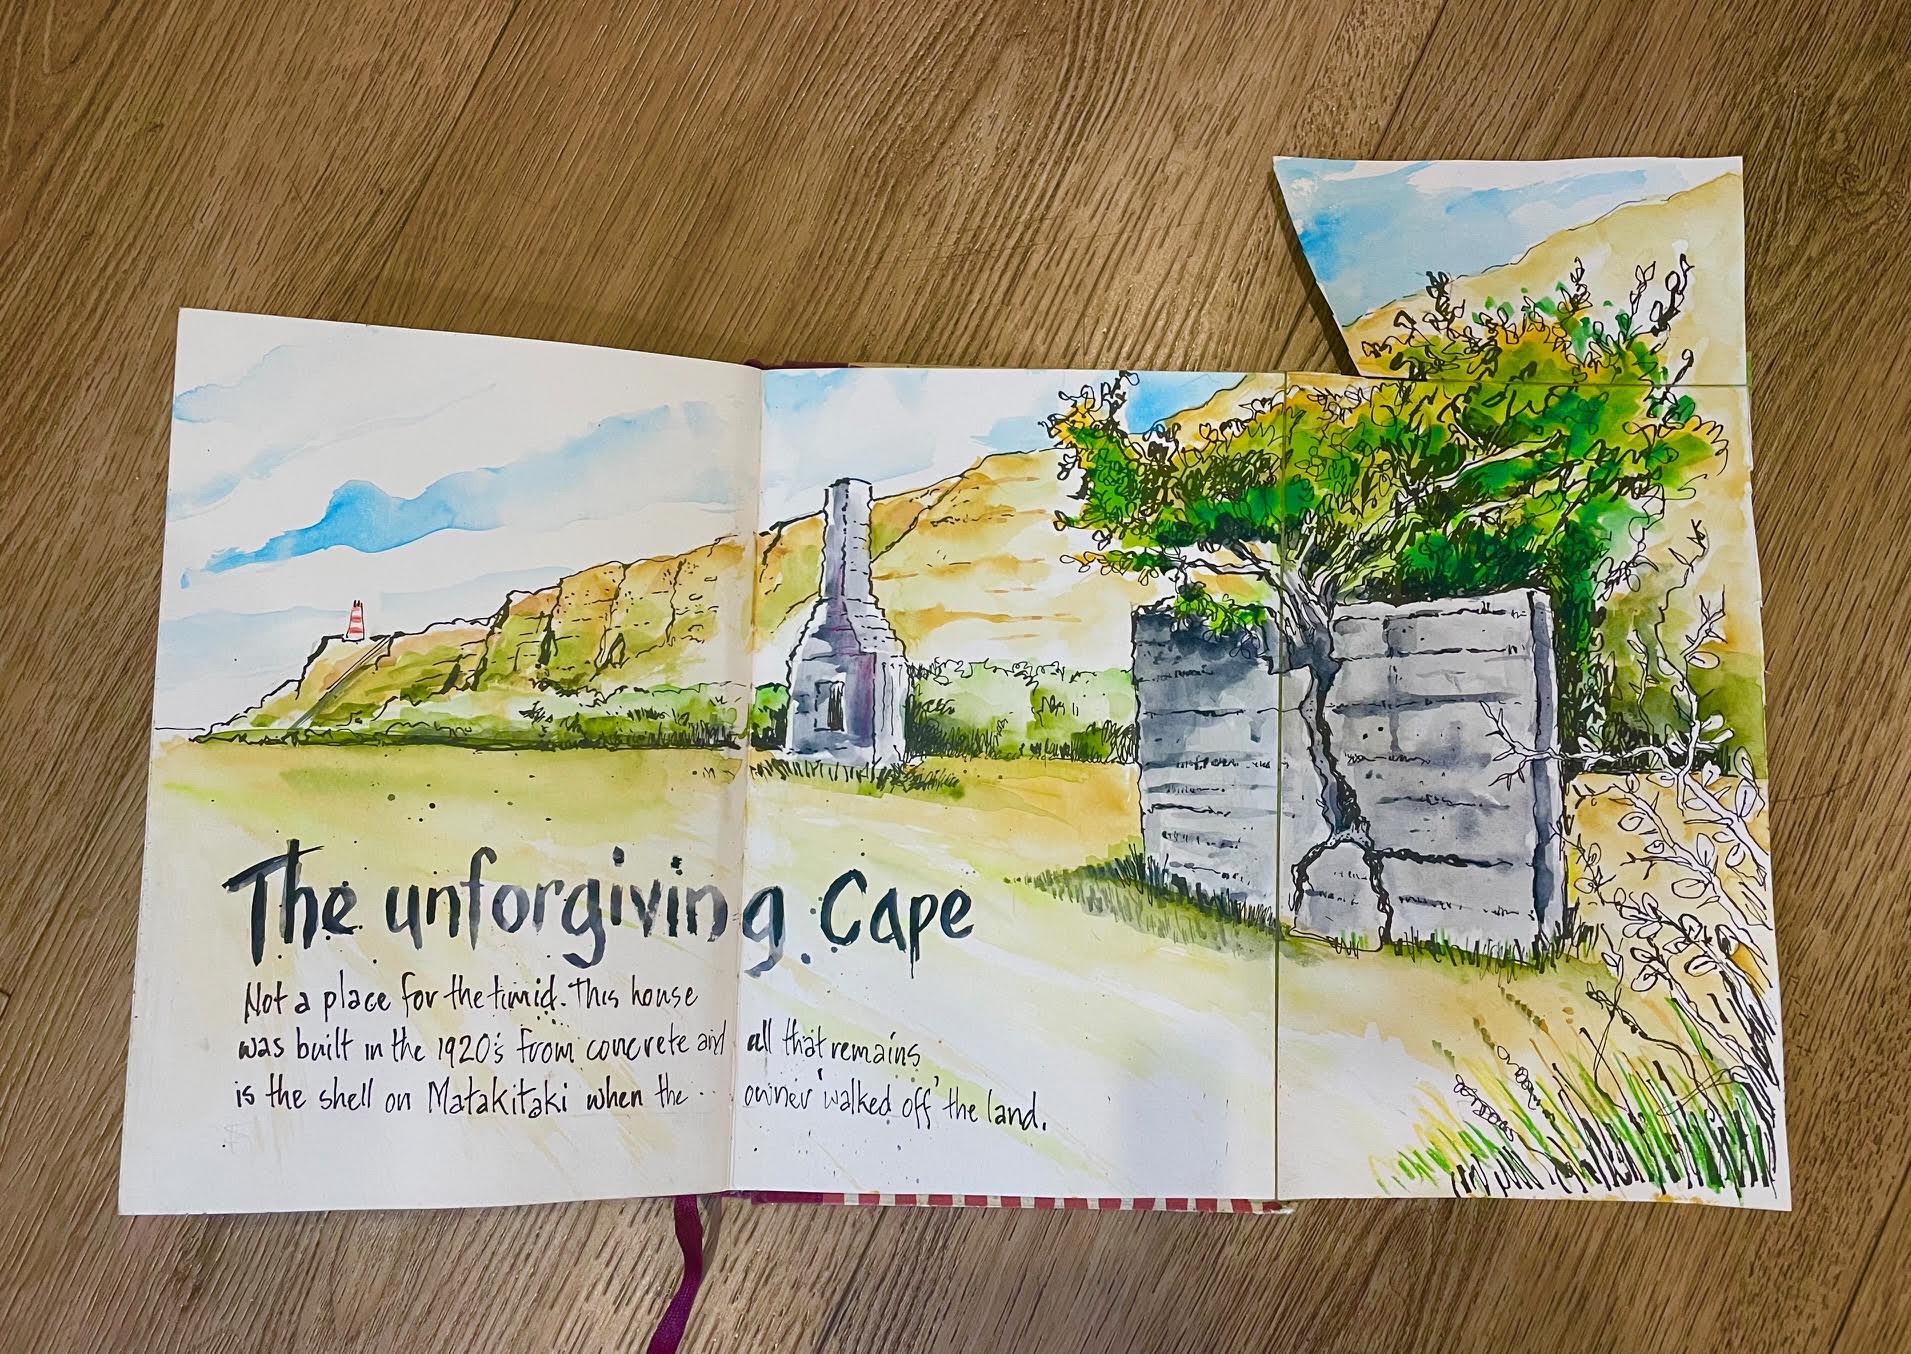 The unforgiving Cape
Not a place for the timid. This house
was built in the 1920's from concrete and all that remains
is the shell on Matakitaki when the .. owner 'walked off' the land.